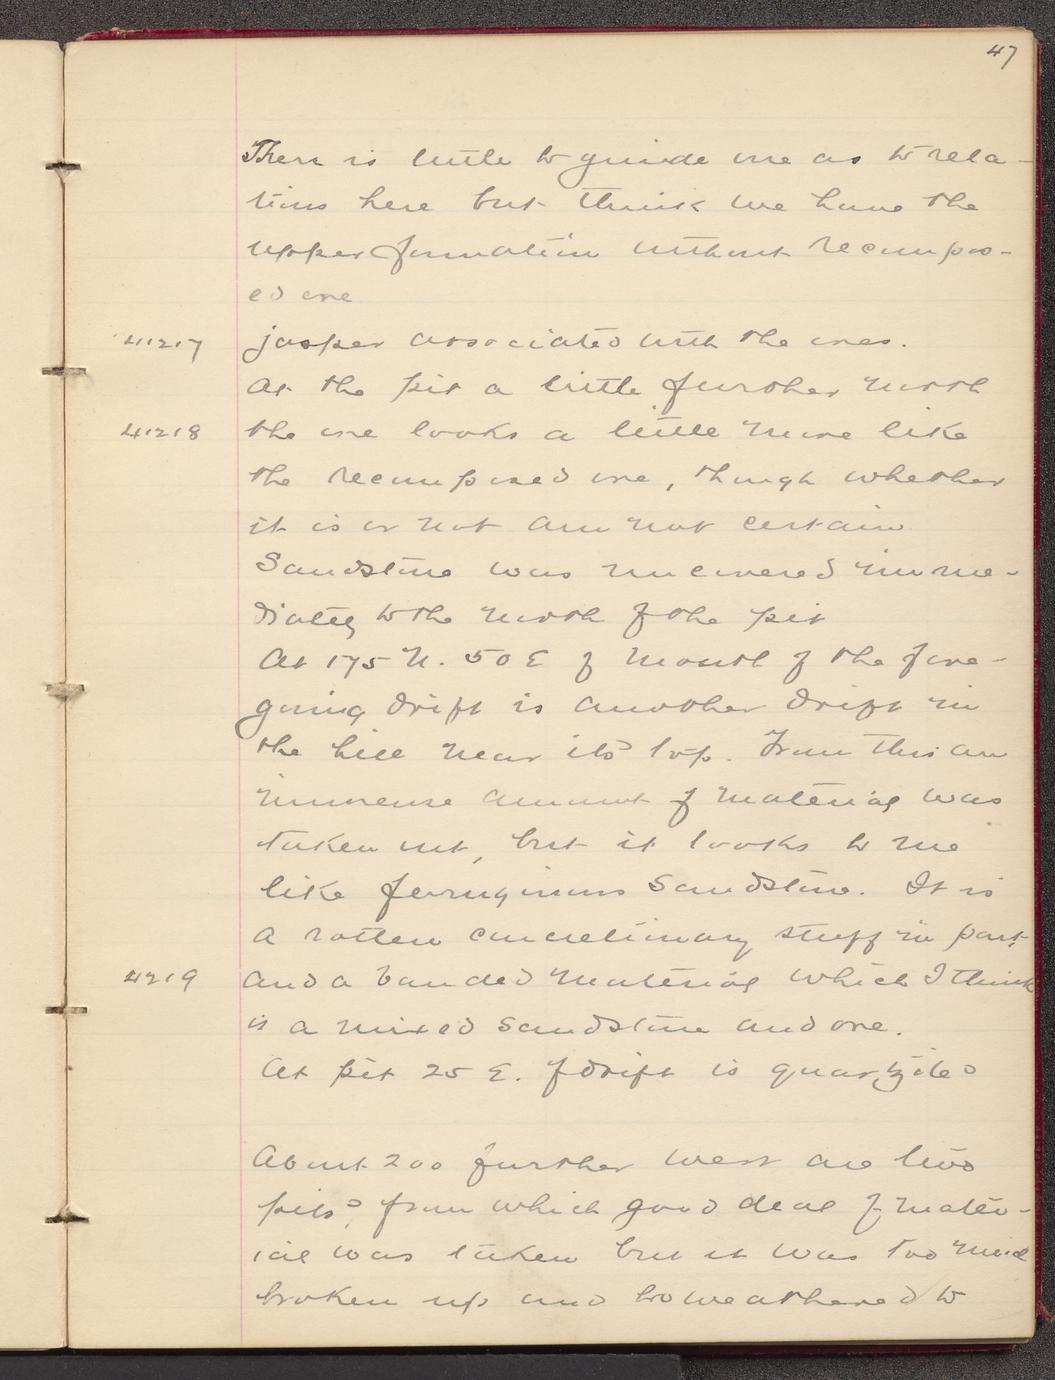 47
There is little to guide one as to rela-
tions here but think we have the
upper formation without recompos-
ed ore
41217 jasper associated with the ores.
At the pit a little further north
41218 the ore looks a little more like
the recomposed ore, though whether
it is or not am not certain.
Sandstone was uncovered imme-
diately to the north of the pit
At 175 N. 50 E of mouth of the fore-
going drift is another drift in
the hill near its top. From this an
immense amount of material was
taken out, but it looks to me
like ferruginous sandstone. It is
a rotten concretionary stuff in part
4219 and a banded material which I think
is a mixed sandstone and ore.
At pit 25 E. of drift is quartzite
About 200 further west are two
pits, from which good deal of mater-
ial was taken but it was too
broken up and too weathered to